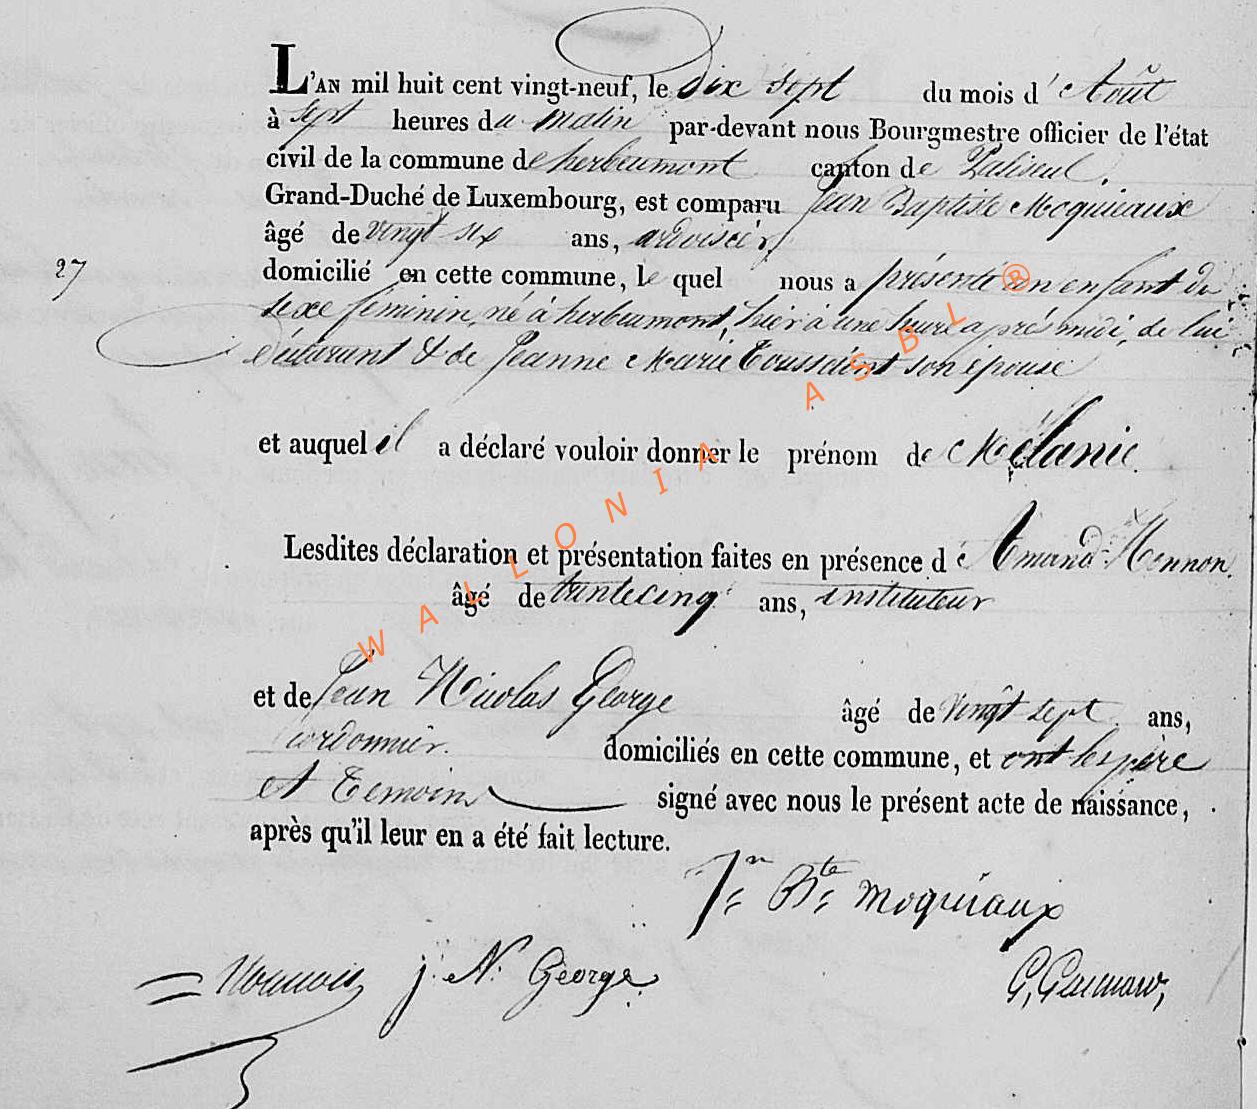 L'AN mil huit cent vingt-neuf, le dix sept du mois d'Août
à sept heures du matin par-devant nous Bourgmestre officier de l'état
civil de la commune de herbeumont canton de Paliseul.
Grand-Duché de Luxembourg, est comparu Jean Baptiste Moquieaux
âgé de vingt six ans, ardoisier,
27 domicilié en cette commune, le quel nous a présenté un enfant du
sexe féminin, né à herbeumont, hier à une heure après midi, de lui
déclarant & de Jeanne Marie Toussaint son épouse
et auquel il a déclaré vouloir donner le prénom de Mélanie.
Lesdites déclaration et présentation faites en présence de Amand Hennon.
âgé de trentecinq ans, instituteur
et de Jean Nicolas George âgé de vingt sept ans,
Cordonnier. domiciliés en cette commune, et ont les père
et Temoins signé avec nous le présent acte de naissance,
après qu'il leur en a été fait lecture.
Jn Bte moquiaux
j. N. George
WALLONIA ASBL ®